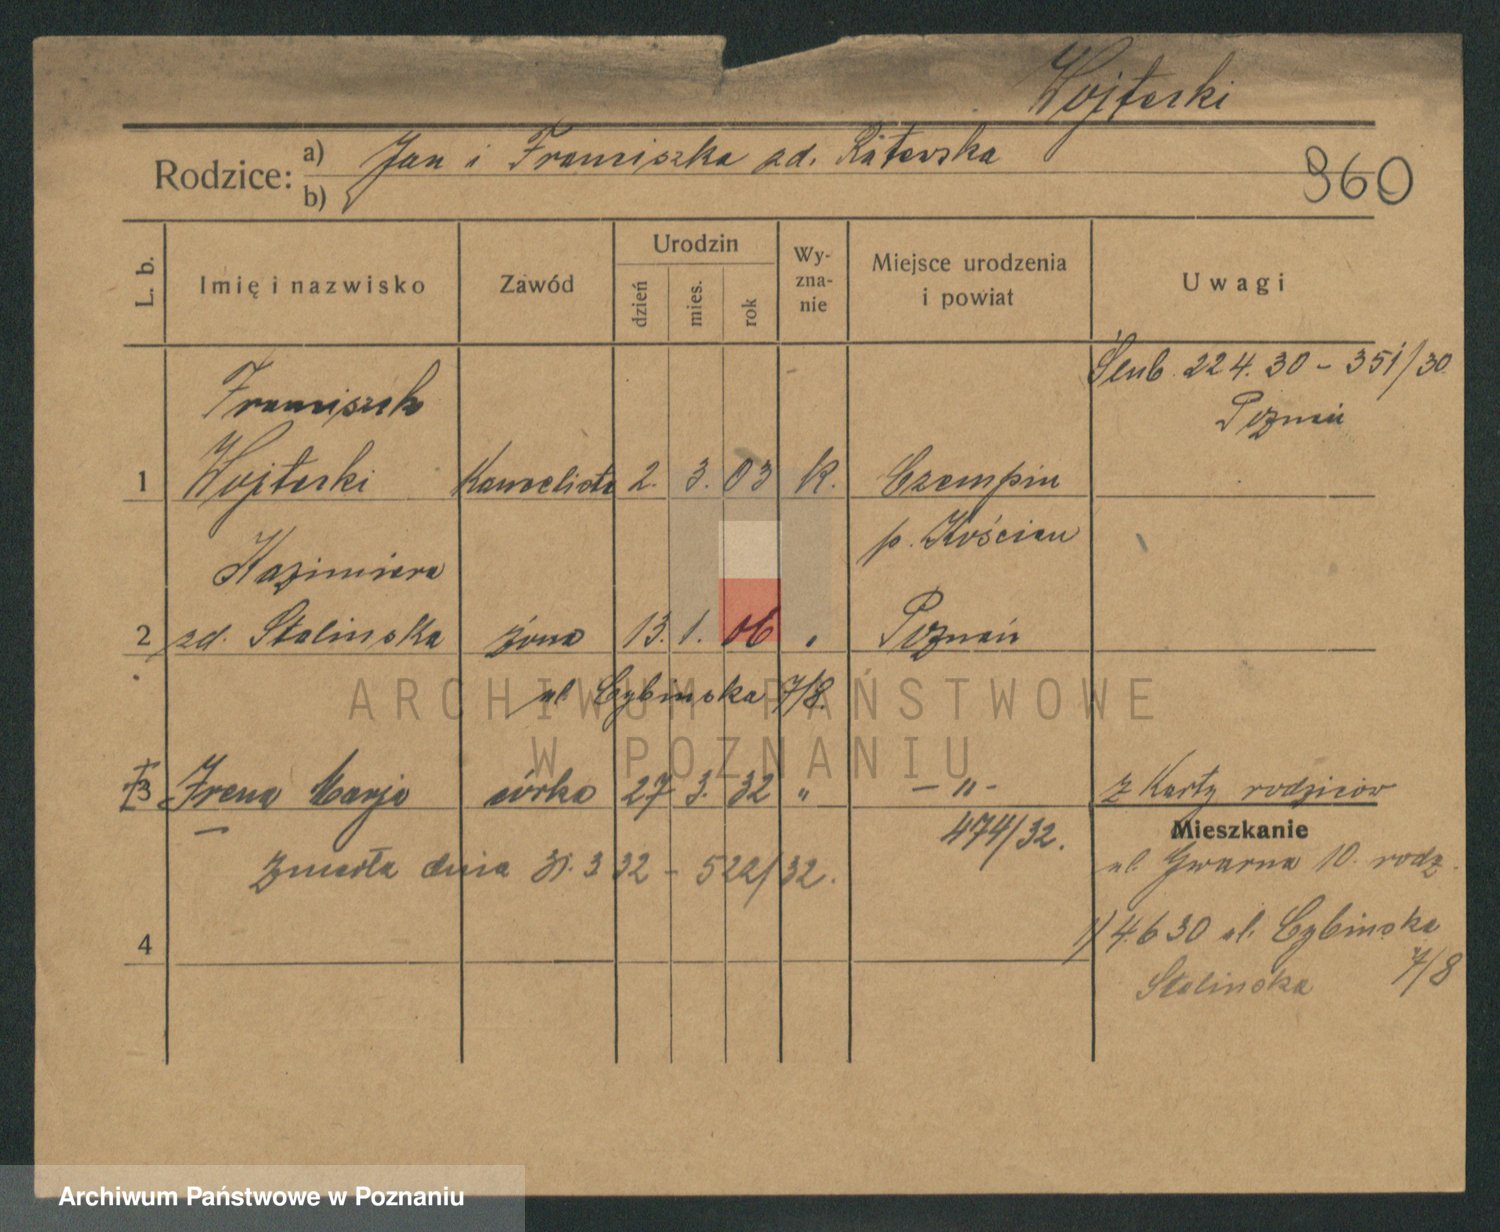 Wojterski
Rodzice: a) Jan i Franciszka zd. Ratewska
b)
960
L. b.
Imię i nazwisko
Zawód
Urodzin
dzień
mies.
rok
Wy-
zna-
nie
Miejsce urodzenia
i powiat
Uwagi
Ślub 22 4. 30 - 351/30
Poznań
Franciszek
1 Wojterski Kancelista 2. 3. 03 K. Czempiń
p. Kościan
Kazimiera
2 zd. Stalinska żona 13. 1. 06 " Poznań
ul. Cybinska 7/8.
ARCHIWUM PAŃSTWOWE
W POZNANIU
†3 Irena Marja córka 27 3. 32 " - " - z Karty rodziców
474/32.
Zmarła dnia 31. 3 32 - 522/32.
Mieszkanie
ul. Gwarna 10. rodz.
1) 4.6 30 ul. Cybinska
7/8
Stalinska
4
Archiwum Państwowe w Poznaniu